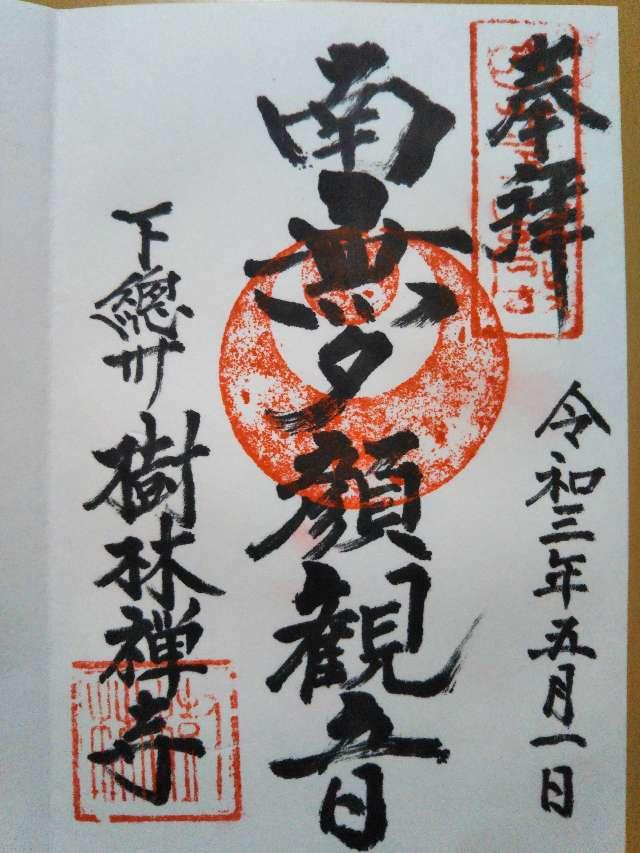 奉拝
令和三年五月一日
南無夕顔観音
下總州 樹林禅寺